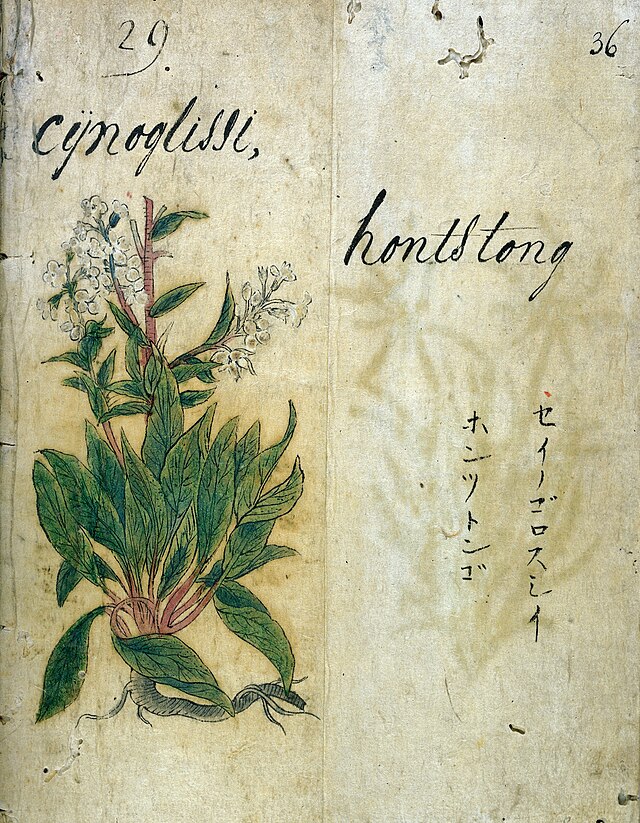 29.
36
cijnoglissi,
hontstong
セイノゴロスミイ
ホンツトンゴ